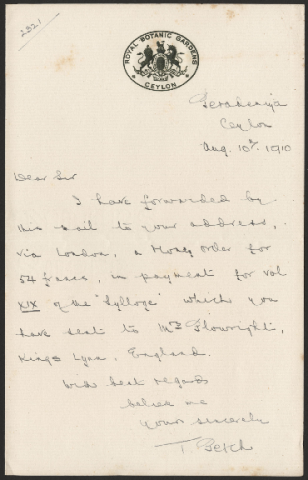 2321
ROYAL BOTANIC GARDENS
CEYLON
Peradeniya
Ceylon
Aug. 10th. 1910
Dear Sir
I have forwarded by
this mail to your address,
via London, a Money order for
54 francs, in payment for vol
XIX of the "Sylloge" which you
have sent to Mr Plowright,
Kings Lynn, England.
With best regards
believe me
yours sincerely
T. Petch